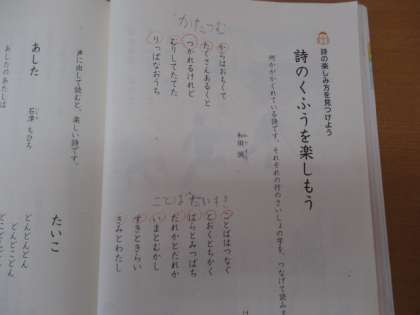 詩の楽しみ方を見つけよう
詩のくふうを楽しもう
何かがかくれている詩です。それぞれの行のさいしょの字を、つなげて読みま
和田 誠
かたつむ
からはおもくて
たくさんあるくと
つかれるけれど
むりしてたてた
りっぱなおうち
ことばだいすき
ことばはつなぐ
とおくとちかく
ばらとみつばち
だれかとだれか
いまとむかし
すきときらい
きみとわたし
声に出して読むと、楽しい詩です。
あした
石津 ちひろ
あしたのあたしは
たいこ
どんどんどん
どんどこどん